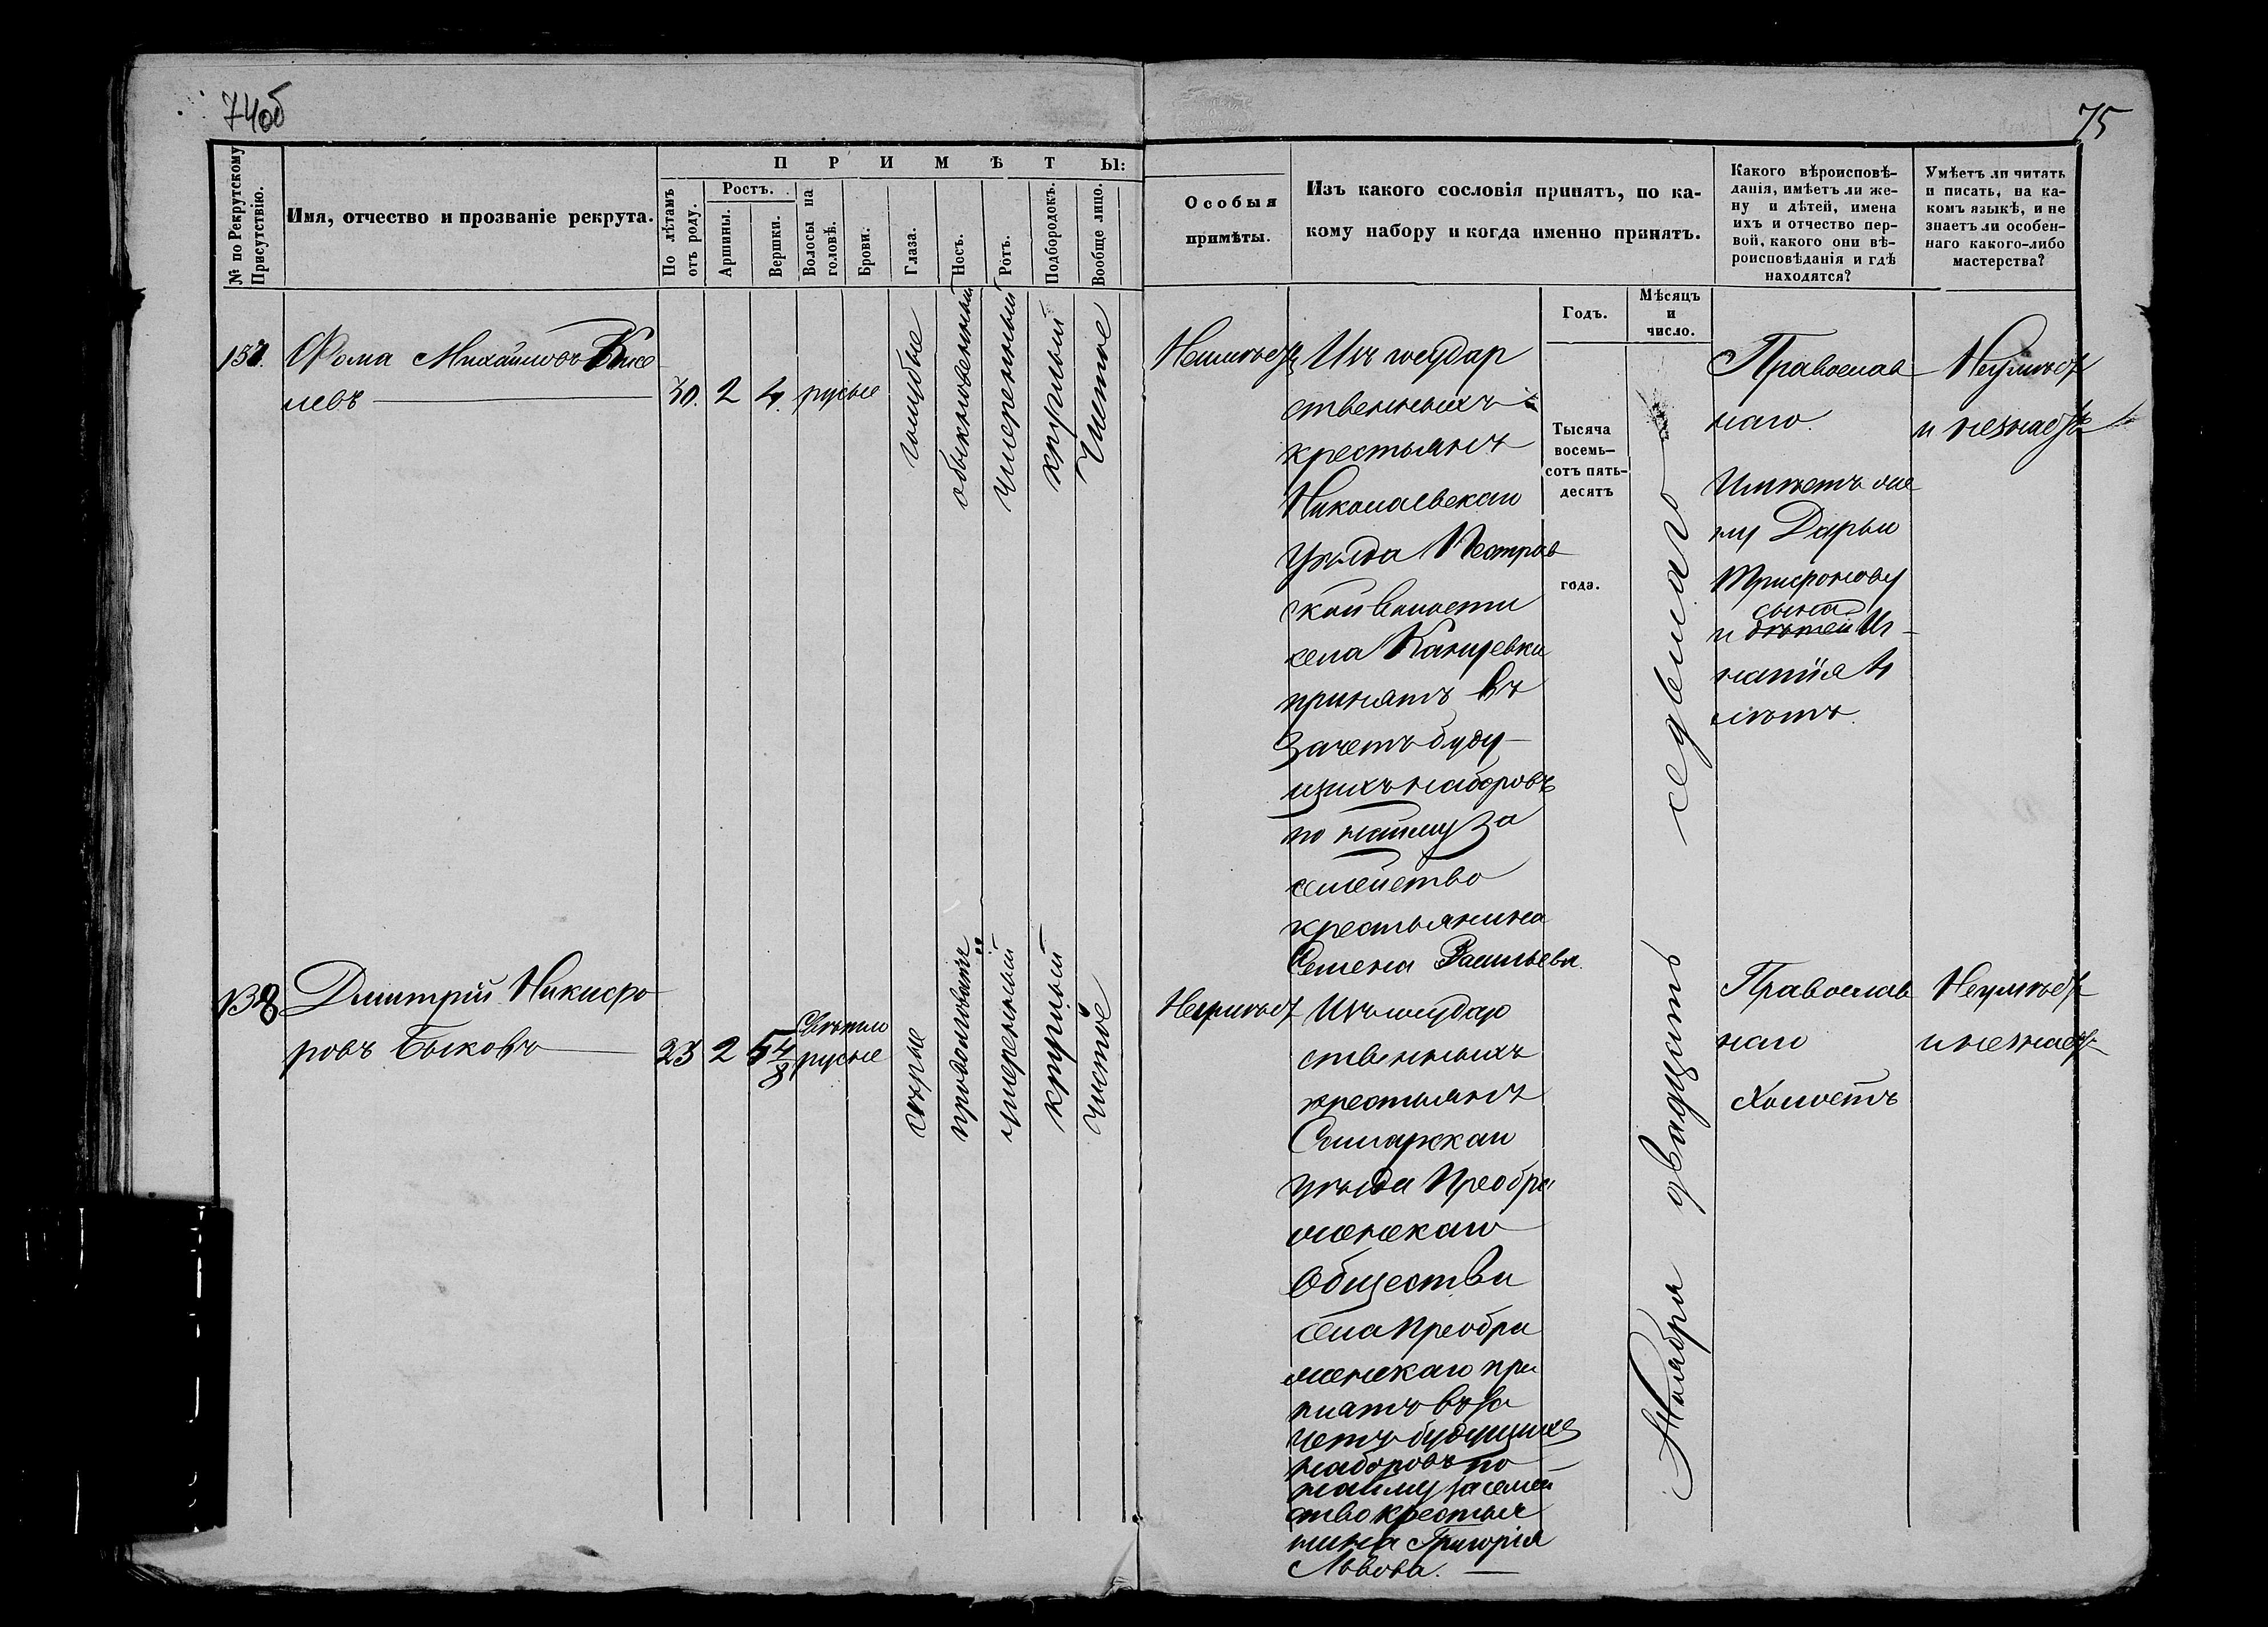 74об
75
№ по Рекрутскому Присутствію.
Имя, отчество и прозваніе рекрута.
ПРИМѢТЫ:
По лѣтамъ отъ роду.
Ростъ.
Аршины.
Вершки.
Волосы на головѣ.
Брови.
Глаза.
Носъ.
Ротъ.
Подбородокъ.
Вообще лицо.
Особыя
примѣты.
Изъ какого сословія принятъ, по ка-
кому набору и когда именно принятъ.
Годъ.
Мѣсяцъ
и
число.
Какого вѣроисповѣ-
данія, имѣетъ ли же-
ну и дѣтей, имена
ихъ и отчество пер-
вой, какого они вѣ-
роисповѣданія и гдѣ
находятся?
Умѣетъ ли читать
и писать, на ка-
комъ языкѣ, и не
знаетъ ли особен-
наго какого-либо
мастерства?
137.
Фома Михайловъ Кисе
левъ
30.
2
4.
русые
голубые
обыкновенный
умеренный
круглый
Чистое
Неимѣетъ
Изъ государ
ственныхъ
крестьянъ
Николаевскаго
Уѣзда Пестрав
ской волости
села Канцевки
принятъ въ
зачетъ буду-
щихъ наборовъ
по найму за
семейство
крестьянина
Семена Васильева.
Тысяча
восемь-
сотъ пять-
десятъ
года.
Ноября двадцать седьмаго
Православ
наго.
Имѣетъ же
ну Дарью
Трифонову
сына
и дѣтей Иг-
натія 4
лѣтъ.
Неумѣетъ
и незнаетъ
138
Дмитрій Никифо
ровъ Быковъ
23
2
5 4/8
Свѣтло
русые
сѣрые
продолговатъ
умеренный
круглый
чистое
Неимѣетъ
Изъ государ
ственныхъ
крестьянъ
Самарскаго
уѣзда Преобра
женскаго
Общества
села Преобра
женскаго при
нятъ въ за
четъ будущихъ
наборовъ по
найму за семей
ство крестья
нина Григорія
Львова.
Православ
наго
Холостъ
Неумѣетъ
и незнаетъ